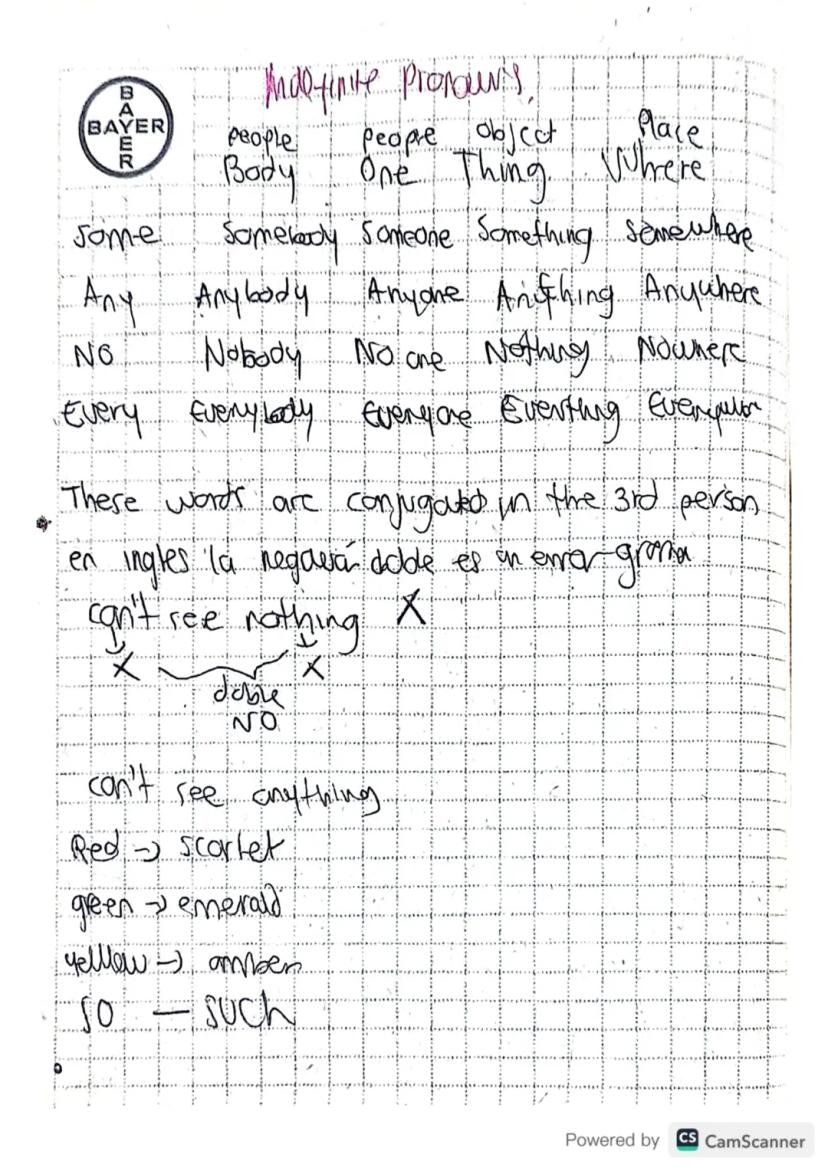 Indefinite Pronouns.
BAYER
BAYER
people people object Place
Body One Thing Where
Some Somebody Someone Something Somewhere
Any Anybody Anyone Anything Anywhere
NO Nobody No one Nothing Nowhere
Every Everybody Everyone
These words are conjugated in the 3rd person
en ingles la doble es un error
can't see nothing X
X X
doble
NO
can't see anything
Red → scarlet
green → emerald
yellow → amber
SO — SUCH
Powered by CS CamScanner